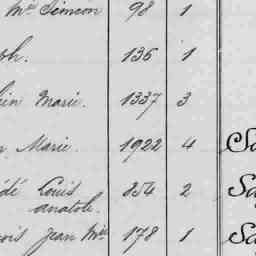 Mie Simeon 98 1
ph. 135 1
hin Marie. 1337 3
Marie. 1922 4
dé Louis 254 2
anatole.
ois Jean Mie 178 1